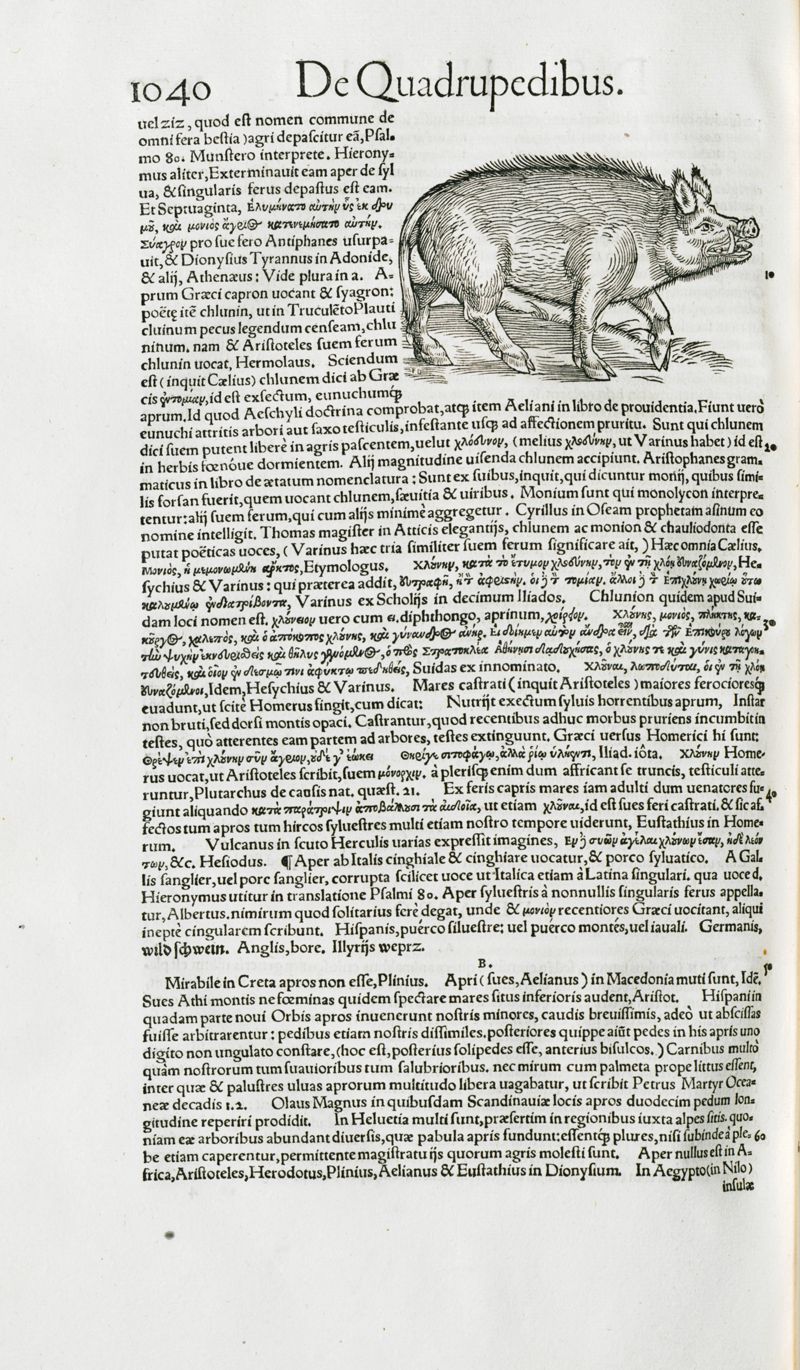 1040 De Quadrupedibus.
uel ziz, quod eſt nomen commune de
omni fera beſtia) agri depaſcitur eā, Pſal⸗
mo 80. Munſtero interprete. Hierony⸗
mus aliter, Exterminauit eam aper de ſyl
ua, & ſingularis ferus depaſtus eſt eam.
Et Septuaginta, Ἐλυμήνατο αὐτὴν ὗς ἐκ δρυ
μȣ͂, καὶ μονιὸς ἄγριΘ κατενεμήσατο αὐτήν.
Σύαγρον pro ſue fero Antiphanes uſurpa⸗
uit, & Dionyſius Tyrannus in Adonide,
& alij, Athenæus: Vide plura in a. A⸗
prum Græci capron uocant & ſyagron:
poëtę itē chlunin, ut in Truculēto Plauti
cluinum pecus legendum cenſeam, chlu
ninum. nam & Ariſtoteles ſuem ferum
chlunin uocat, Hermolaus. Sciendum
eſt (inquit Cælius) chlunem dici ab Græ
cis id eſt exſectum, eunuchumq́;
aprum. Id quod Aeſchyli doctrina comprobat, atq; item Aeliani in libro de prouidentia. Fiunt uerò
eunuchi attritis arbori aut ſaxo teſticulis, infeſtante uſq; ad affectionem pruritu. Sunt qui chlunem
dici ſuem putent liberè in agris paſcentem, uelut χλόδυνον, (melius χλοδύνην, ut Varinus habet) id eſt
in herbis fœnóue dormientem. Alij magnitudine uiſenda chlunem accipiunt. Ariſtophanes gram⸗
maticus in libro de ætatum nomenclatura: Sunt ex ſuibus, inquit, qui dicuntur monij, quibus ſimi⸗
lis forſan fuerit, quem uocant chlunem, ſæuitia & uiribus. Monium ſunt qui monolycon interpre⸗
tentur: alij ſuem ferum, qui cum alijs minimè aggregetur. Cyrillus in Oſeam prophetam aſinum eo
nomine intelligit. Thomas magiſter in Atticis elegantijs, chlunem ac monion & chauliodonta eſſe
putat poëticas uoces, (Varinus hæc tria ſimiliter ſuem ferum ſignificare ait,) Hæc omnia Cælius.
Μονιὸς, Etymologus. Χλούνην, κατὰ τὸ ἔτυμον χλοδύνην, τὸν ἐν τῇ χλόῃ He⸗
ſychius & Varinus: qui præterea addit,
Varinus ex Scholijs in decimum Iliados. Chlunion quidem apud Sui⸗
dam loci nomen eſt. uero cum ει. diphthongo, aprinum, χοιρεῖον. Χλούνης, μονιὸς,
Suidas ex innominato.
Idem, Heſychius & Varinus. Mares caſtrati (inquit Ariſtoteles) maiores ferocioresq́;
euadunt, ut ſcitè Homerus ſingit, cum dicat: Nutrijt exectum ſyluis horrentibus aprum, Inſtar
non bruti, ſed dorſi montis opaci. Caſtrantur, quod recentibus adhuc morbus pruriens incumbit in
teſtes, quò atterentes eam partem ad arbores, teſtes extinguunt. Græci uerſus Homerici hi ſunt:
Θρέψεν ἐπὶ χλούνην σῦν ἄγριον, Θηρί γε σιτοφάγῳ, ἀλλὰ ῥίῳ ὑλήεντι, Iliad. iôta. Χλούνην Home⸗
rus uocat, ut Ariſtoteles ſcribit, ſuem μόνορχιν. à pleriſq; enim dum affricant ſe truncis, teſticuli atte⸗
runtur, Plutarchus de cauſis nat. quæſt. 21. Ex feris capris mares iam adulti dum uenatores fu⸗
giunt aliquando κατὰ παράτριψιν ἀποβάλλουσι τὰ αἰδοῖα, ut etiam χλοῦναι, id eſt ſues feri caſtrati. & ſic af⸗
fectos tum apros tum hircos ſylueſtres multi etiam noſtro tempore uiderunt, Euſtathius in Home⸗
rum. Vulcanus in ſcuto Herculis uarias expreſſit imagines, Ἐν δὲ συῶν ἀγέλαι χλούνων ἔσαν, ἠδὲ λεόν
των, &c. Heſiodus. ¶ Aper ab Italis cinghiale & cinghiare uocatur, & porco ſyluatico. A Gal⸗
lis ſanglier, uel porc ſanglier, corrupta ſcilicet uoce ut Italica etiam à Latina ſingulari. qua uoce d.
Hieronymus utitur in translatione Pſalmi 80. Aper ſylueſtris à nonnullis ſingularis ferus appella⸗
tur, Albertus. nimirum quod ſolitarius ferè degat, unde & μονιὸν recentiores Græci uocitant, aliqui
ineptè cingularem ſcribunt. Hiſpanis, puérco ſilueſtre: uel puérco montés, uel iauali. Germanis,
wild ſchwein. Anglis, bore. Illyrijs weprz.
B.
Mirabile in Creta apros non eſſe, Plinius. Apri (ſues, Aelianus) in Macedonia muti ſunt, Idē.
Sues Athi montis ne fœminas quidem ſpectare mares ſitus inferioris audent, Ariſtot. Hiſpani in
quadam parte noui Orbis apros inuenerunt noſtris minores, caudis breuiſſimis, adeò ut abſciſſas
fuiſſe arbitrarentur: pedibus etiam noſtris diſſimiles. poſteriores quippe aiūt pedes in his apris uno
digito non ungulato conſtare, (hoc eſt, poſterius ſolipedes eſſe, anterius biſulcos.) Carnibus multò
quàm noſtrorum tum ſuauioribus tum ſalubrioribus. nec mirum cum palmeta prope littus eſſent,
inter quæ & paluſtres uluas aprorum multitudo libera uagabatur, ut ſcribit Petrus Martyr Ocea⸗
neæ decadis 1.2. Olaus Magnus in quibuſdam Scandinauiæ locis apros duodecim pedum lon⸗
gitudine reperiri prodidit. In Heluetia multi ſunt, præſertim in regionibus iuxta alpes ſitis. quo⸗
niam eæ arboribus abundant diuerſis, quæ pabula apris fundunt: eſſentq́; plures, niſi ſubinde à ple⸗ 60
be etiam caperentur, permittente magiſtratu ijs quorum agris moleſti ſunt. Aper nullus eſt in A⸗
frica, Ariſtoteles, Herodotus, Plinius, Aelianus & Euſtathius in Dionyſium. In Aegypto (in Nilo)
inſulæ